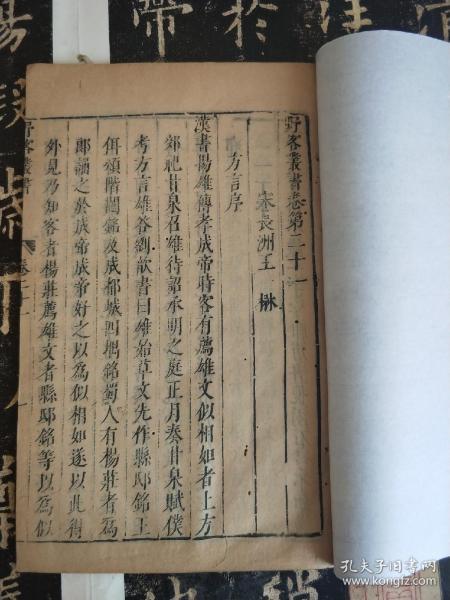 野客叢書卷第二十一
宋長洲王 楙
方言序
漢書揚雄傳孝成帝時客有薦雄文似相如者上方
郊祀甘泉召雄待詔承明之庭正月奏甘泉賦僕
考方言雄答劉歆書曰雄始草文先作縣邸銘王
佴頌階闥銘及成都城四堣銘蜀人有楊莊者為
郎誦之於成帝成帝好之以為似相如遂以此得
外見乃知客者楊莊薦雄文者縣邸銘等以為似
野客叢書
卷二十一
孔夫子旧书网